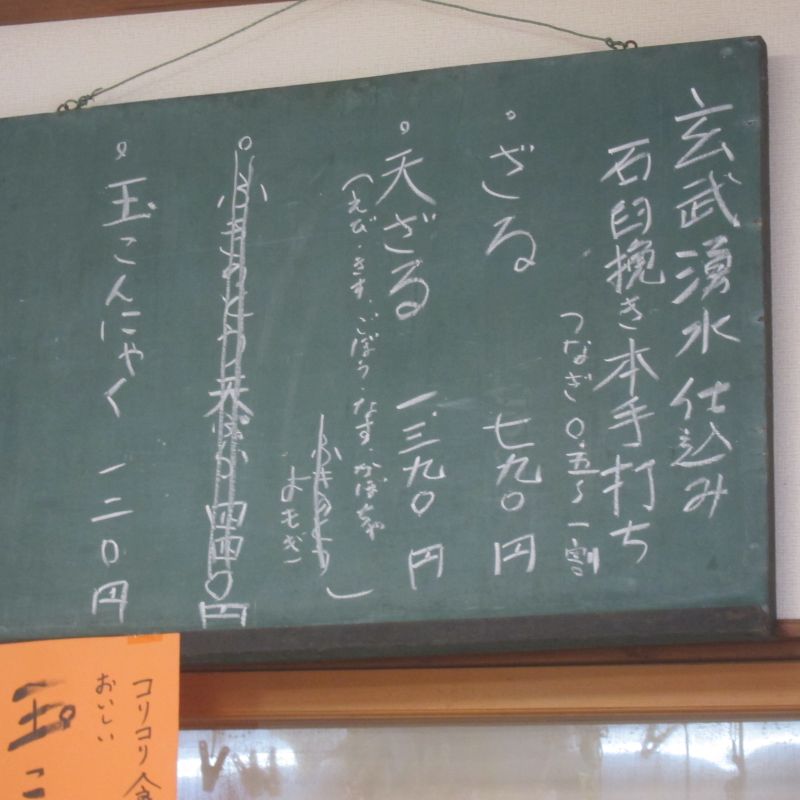 玄武湧水仕込み
石臼挽き本手打ち
つなぎ〇.五〜一割
。ざる 七九〇円
。天ざる 一.三九〇円
(えび・きす、ごぼう・なす、かぼちゃ
ふきのとう
よもぎ)
。ふきのとう天ぷら 四四〇円
。玉こんにゃく 一二〇円
コリコリ
おいしい
玉こ